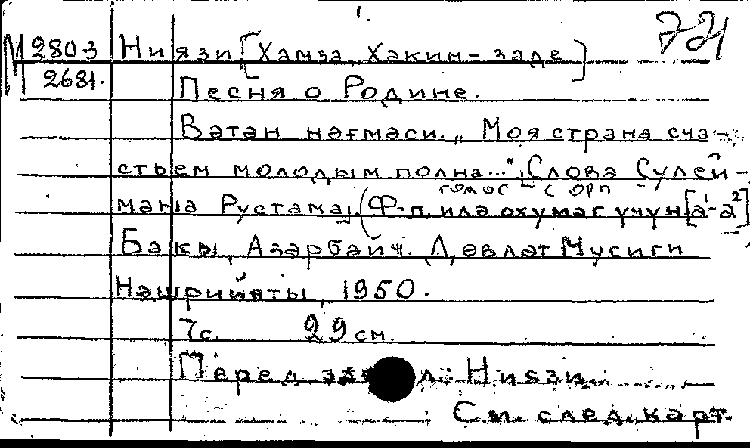 1.
721
М 2803 Ниязи [Хамза Хаким-заде]
2681.
Песня о Родине.
Вәтән нәғмәси. „Моя страна сча-
стьем молодым полна...“ Слова Сулей-
голос с орп
мана Рустама, (Ф-п. илә охумаг учун [а¹-а²]
Бакы, Азәрбайҹ. Дәвләт Мусиги
Нәшрийяты, 1950.
7с. 29 см.
Перед : Ниязи.
См. след. карт.